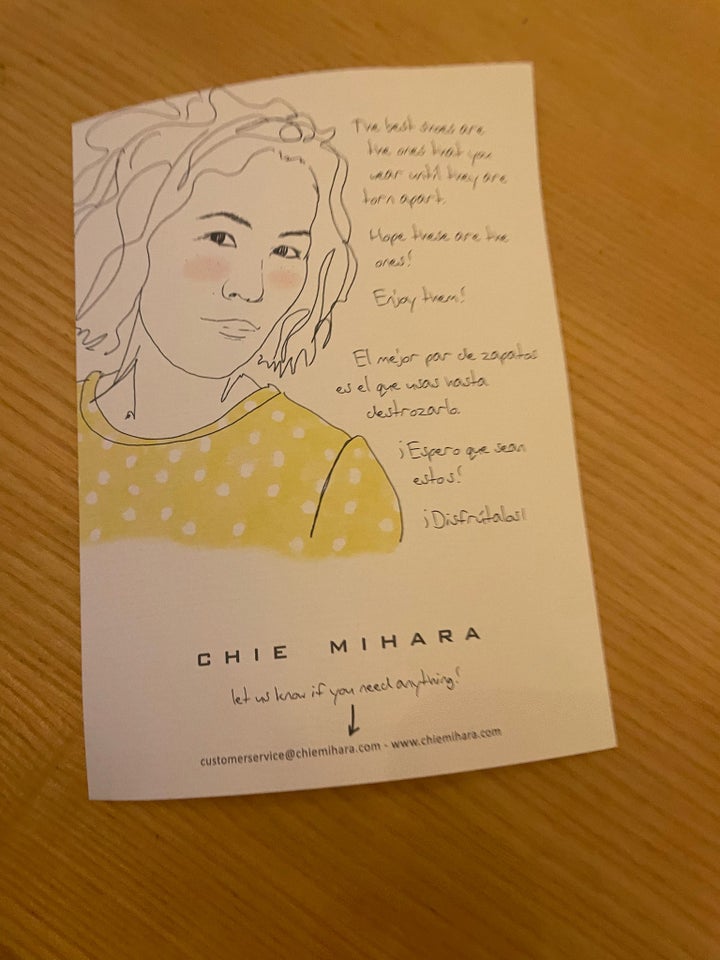 The best shoes are
the ones that you
wear until they are
torn apart.
Hope these are the
ones!
Enjoy them!
El mejor par de zapatos
es el que usas hasta
destrozarlo.
¡Espero que sean
estos!
¡Disfrútalos!
CHIE MIHARA
let us know if you need anything!
customerservice@chiemihara.com - www.chiemihara.com